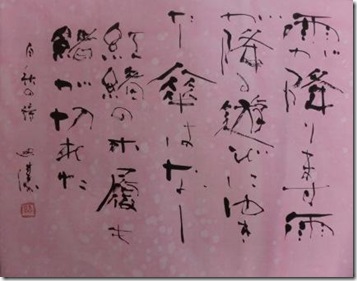 雨が降ります雨
が降る遊びにゆき
たし傘はなし
紅緒の木履も
緒が切れた
白秋の詩